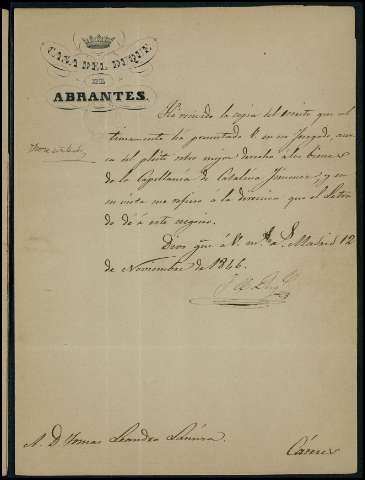 CASA DEL DUQUE
DE
ABRANTES.
He recibido la copia del escrito que ul
timamente ha presentado V. en ese Juzgado, acer
ca del pleito sobre mejor derecho á los bienes
de la Capellanía de Catalina Jimenez; y en
su vista me refiero á la direccion que el Letra
do dé á este negocio.
Dios gue. á V. ms. as. Madrid 12
de Noviembre de 1846.
A. D. Tomas Leandro
Cáceres